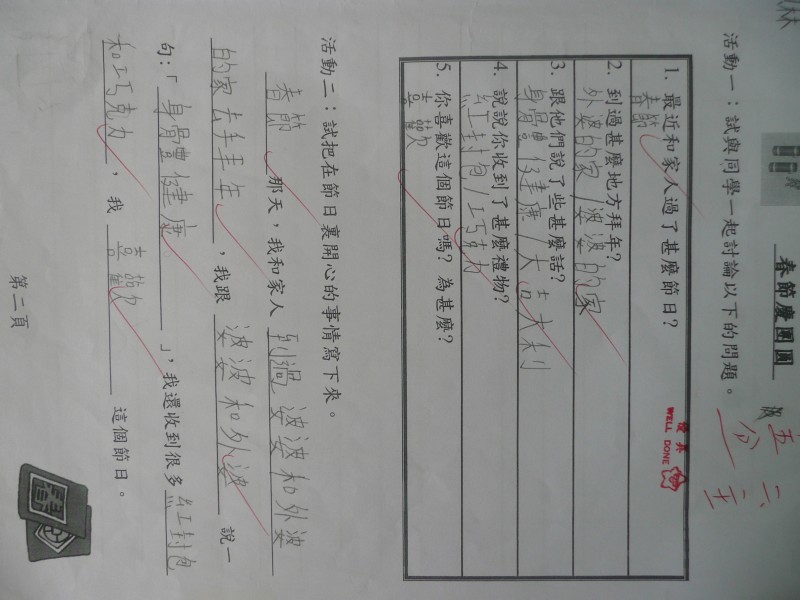 春節慶團圓
活動一：試與同學一起討論以下的問題。
優異
WELL DONE
1. 最近和家人過了甚麼節日？
春節
2. 到過甚麼地方拜年？
外婆的家/婆婆的家
3. 跟他們說了些甚麼話？
身體健康/大吉大利
4. 說說你收到了甚麼禮物？
紅封包/巧克力
5. 你喜歡這個節日嗎？為甚麼？
喜歡
活動二：試把在節日裏開心的事情寫下來。
春節 那天，我和家人 到過婆婆和外婆
的家去拜年，我跟 婆婆和外婆 說一
句：「身體健康。」，我還收到很多 紅封包
和巧克力，我 喜歡 這個節日。
第二頁